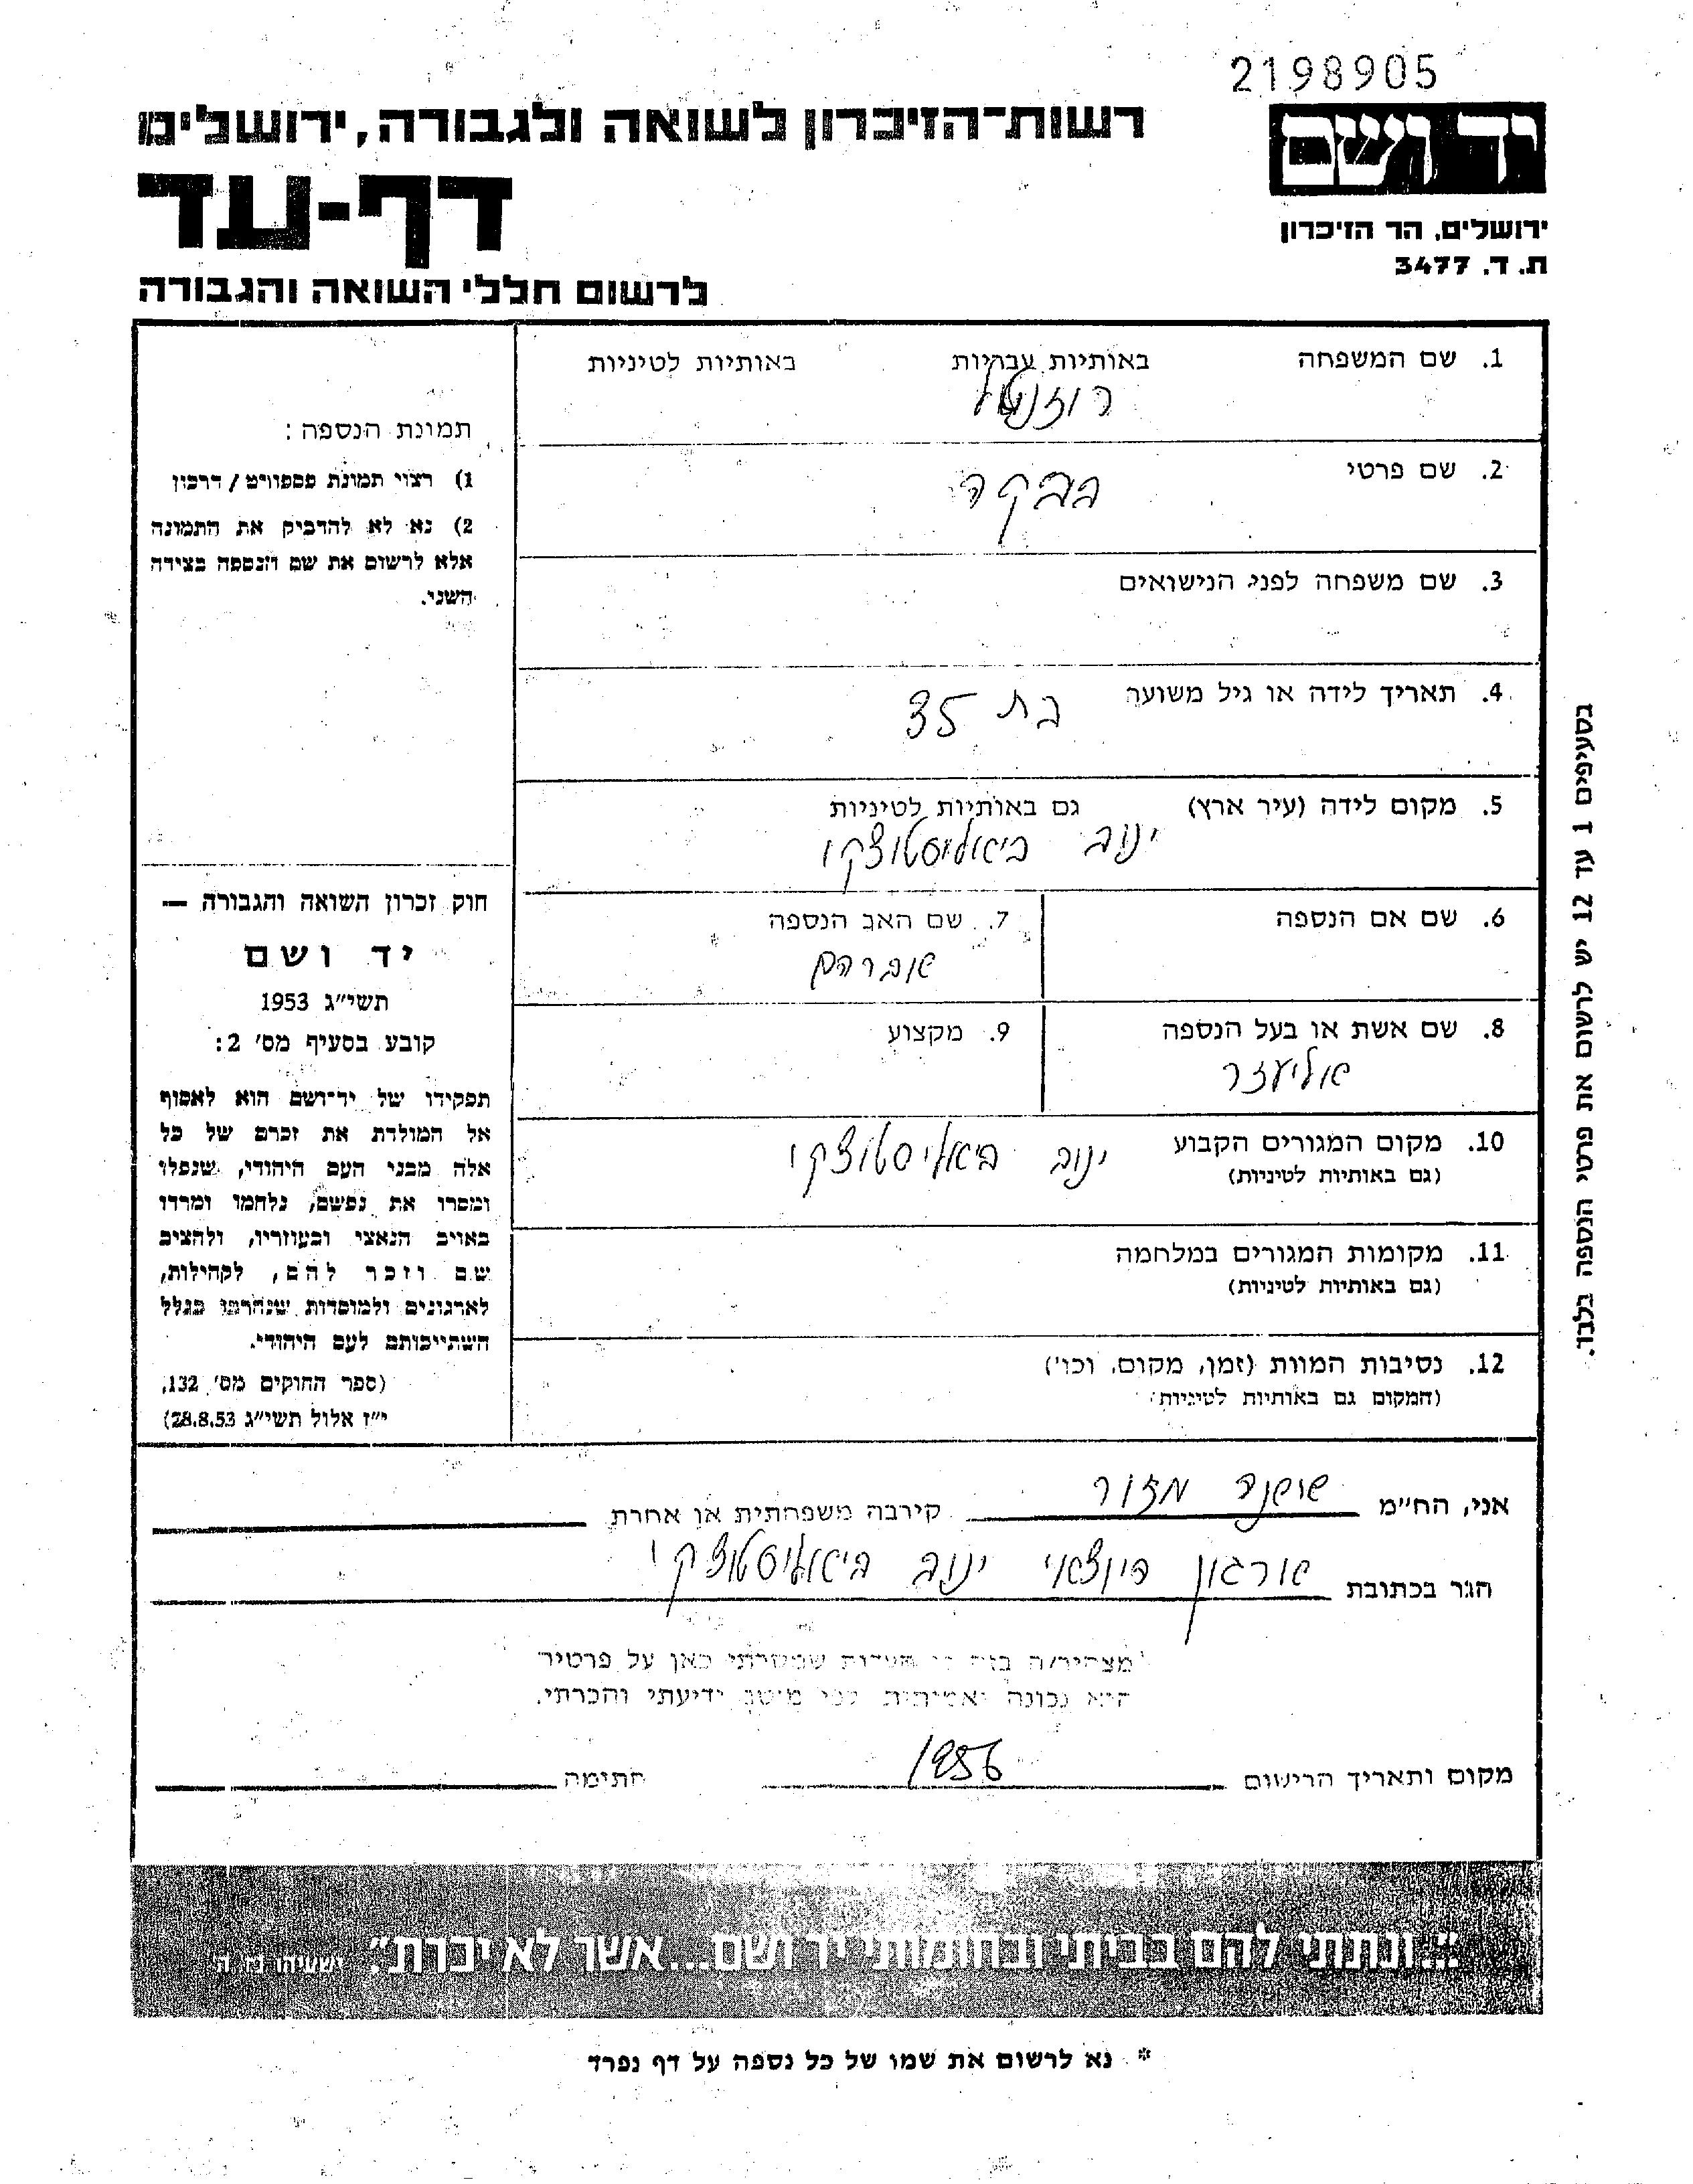 2198905
רשות-הזיכרון לשואה ולגבורה, ירושלים
יד ושם
דף-עד
ירושלים, הר הזיכרון
ת. ד. 3477
לרשום חללי השואה והגבורה
1. שם המשפחה באותיות עבריות באותיות לטיניות
רוזנטל
2. שם פרטי
רבקה
3. שם משפחה לפני הנישואים
4. תאריך לידה או גיל משוער בת 35
5. מקום לידה (עיר ארץ) גם באותיות לטיניות
ינוב ביאליסטוצקי
6. שם אם הנספה
7. שם האב הנספה
אברהם
8. שם אשת או בעל הנספה
אליעזר
9. מקצוע
10. מקום המגורים הקבוע ינוב ביאליסטוצקי
(גם באותיות לטיניות)
11. מקומות המגורים במלחמה
(גם באותיות לטיניות)
12. נסיבות המוות (זמן, מקום, וכו')
(המקום גם באותיות לטיניות)
תמונת הנספה:
1) רצוי תמונת פספורט / דרכון
2) נא לא להדביק את התמונה
אלא לרשום את שם הנספה בצידה
השני.
חוק זכרון השואה והגבורה —
יד ושם
תשי"ג 1953
קובע בסעיף מס' 2:
תפקידו של יד-ושם הוא לאסוף
אל המולדת את זכרם של כל
אלה מבני העם היהודי, שנפלו
ומסרו את נפשם, נלחמו ומרדו
באויב הנאצי ובעוזריו, ולהציב
שם וזכר להם, לקהילות,
לארגונים ולמוסדות שנחרבו בגלל
השתייכותם לעם היהודי.
(ספר החוקים מס' 132,
י"ז אלול תשי"ג 28.8.53)
בסעיפים 1 עד 12 יש לרשום את פרטי הנספה בלבד.
אני, הח"מ שושנה מזור קירבה משפחתית או אחרת
הגר בכתובת ארגון יוצאי ינוב ביאליסטוצקי
מצהיר/ה בזה כי העדות שמסרתי כאן על פרטיה
היא נכונה ואמיתית לפי מיטב ידיעתי והכרתי.
מקום ותאריך הרישום 1956 חתימה
"...ונתתי להם בביתי ובחומותי יד ושם...אשר לא יכרת". ישעיהו נו, ה'
* נא לרשום את שמו של כל נספה על דף נפרד